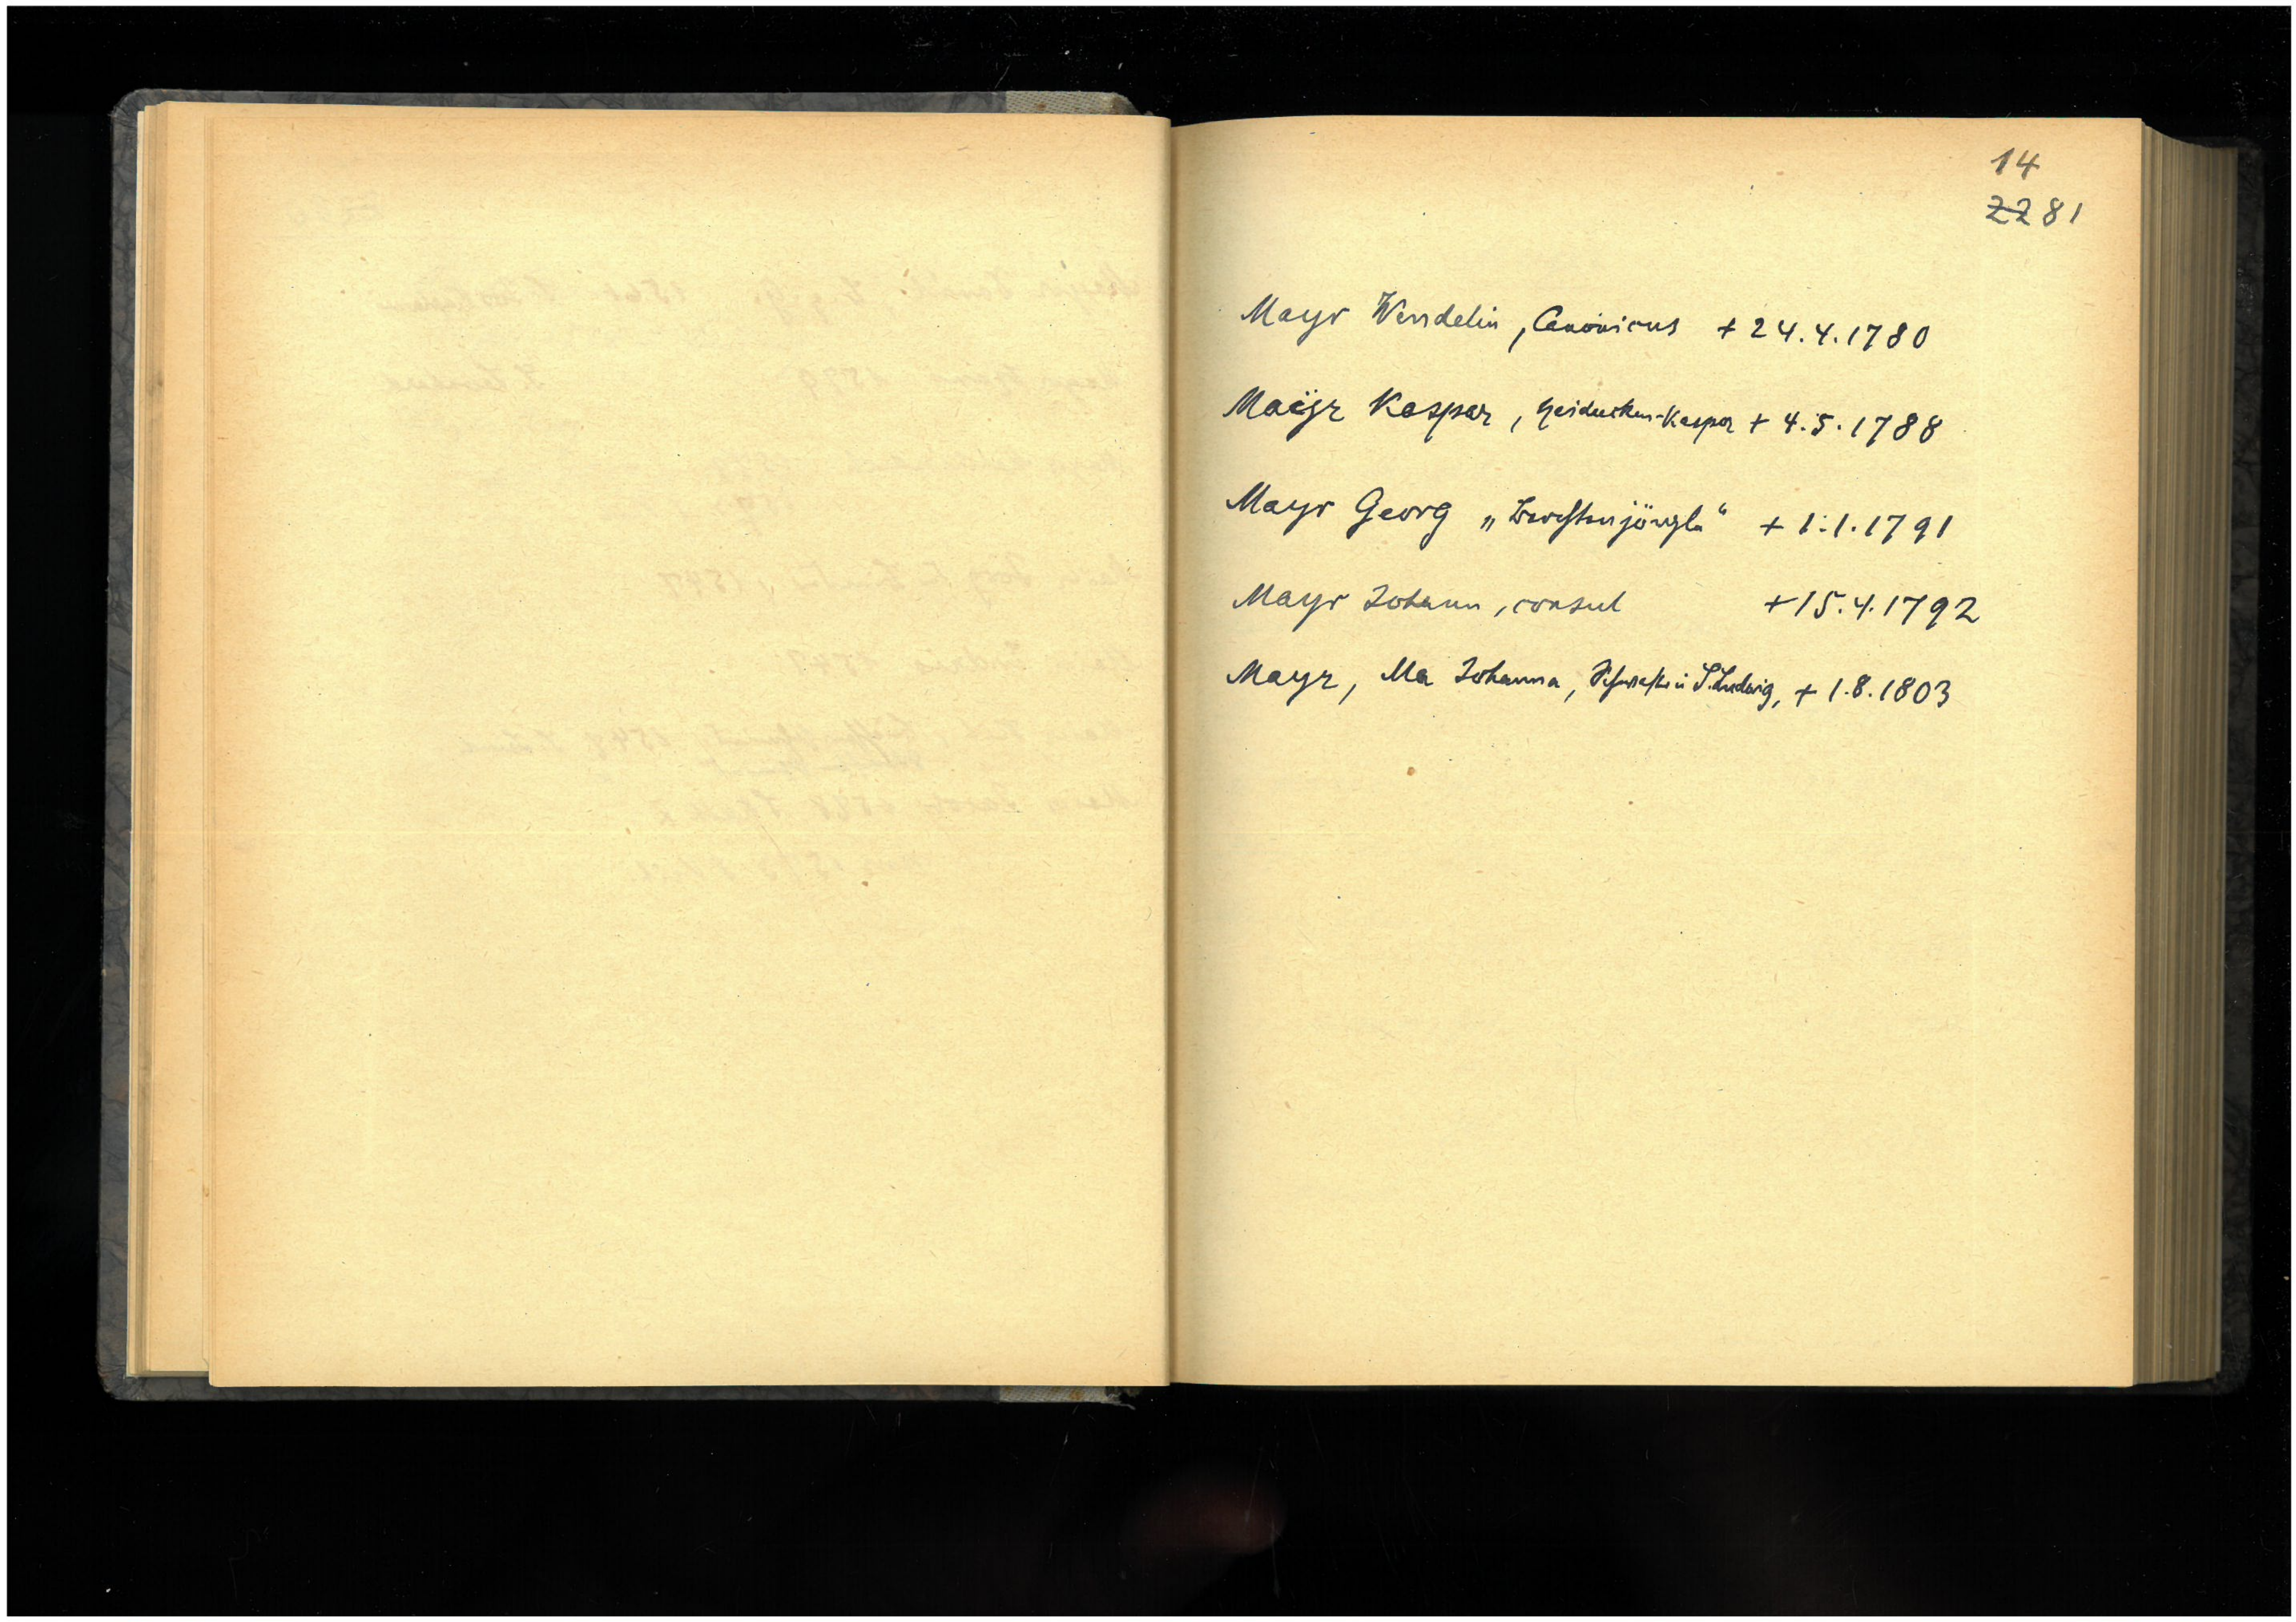 14
22 81
Mayr Wendelin, Canonicus + 24.4.1780
Maÿr Kaspar, Heiducken-Kaspar + 4.5.1788
Mayr Georg + 1.1.1791
Mayr Johann, consul +15.4.1792
Mayr, Ma Johanna, S. Ludwig, + 1.8.1803